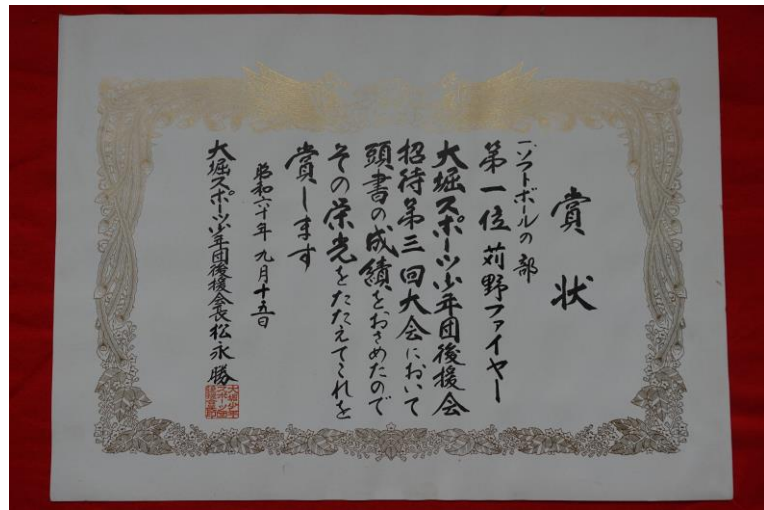 賞状
ソフトボールの部
第一位 苅野ファイヤー
大堀スポーツ少年団後援会
招待第三回大会において
頭書の成績をおさめたので
その栄光をたたえてこれを
賞します
昭和六十年九月十五日
大堀スポーツ少年団後援会長 松永勝